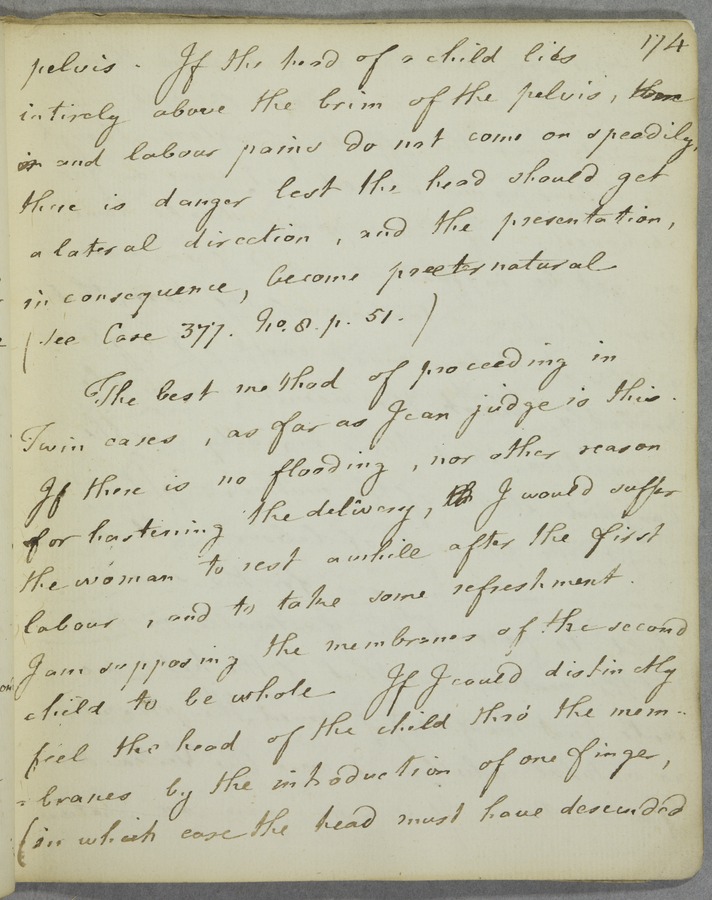 174
pelvis. If the head of a child lies
intirely above the brim of the pelvis, there
is and labour pains do not come on speedily,
there is danger lest the head should get
a lateral direction, and the presentation,
in consequence, become preeternatural
(see Case 377. No. 8. p. 51.)
The best method of proceeding in
Twin cases, as far as I can judge is this.
If there is no flooding, nor other reason
for hastening the delivery, th I would suffer
the woman to rest awhile after the first
labour, and to take some refreshment.
I am supposing the membranes of the second
child to be whole. If I could distinctly
feel the head of the child thro' the mem-
-branes by the introduction of one finger,
(in which case the head must have descended